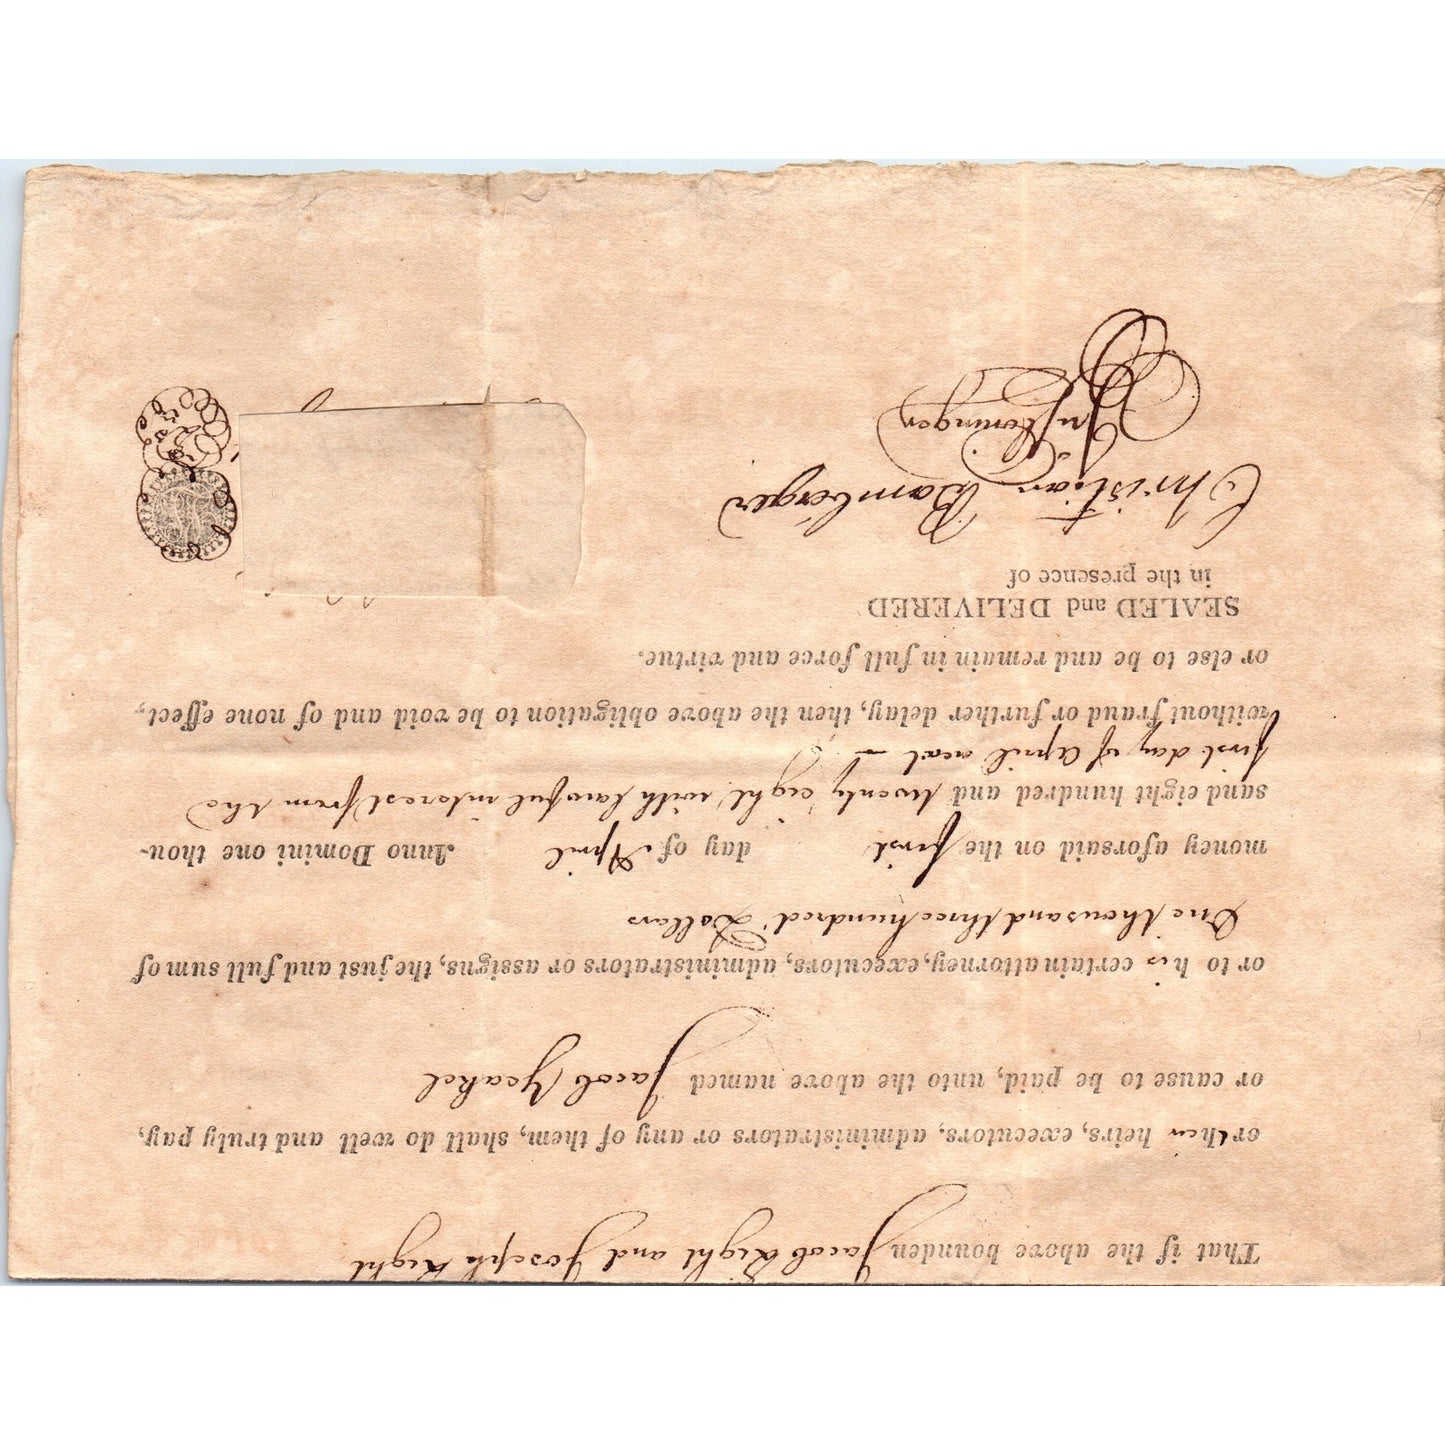 That if the above bounden Jacob Light and Joseph Light
or their heirs, executors, administrators or any of them, shall do well and truly pay,
or cause to be paid, unto the above named Jacob Yeakel
or to his certain attorney, executors, administrators or assigns, the just and full sum of
One thousand three hundred Dollars
money aforsaid on the first day of April Anno Domini one thou-
sand eight hundred and twenty eight, with lawful interest from the
first day of April next —
without fraud or further delay, then the above obligation to be void and of none effect,
or else to be and remain in full force and virtue.
SEALED and DELIVERED
in the presence of
Christian Bamberger